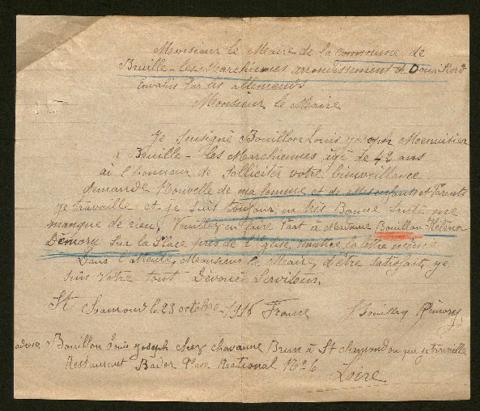 Monsieur le Maire de la commune de
Bruille-les-Marchiennes arrondissement de Douai Nord
envahis par les allemands
Monsieur le Maire
Je Sousigné Bouillon Louis joseph Menuisier
à Bruille-les Marchiennes agé de 42 ans
ai l'honneur de solliciter votre bienveillance
demande Nouvelle de ma femme et de Mes enfants et Parents
je travaille et je suis toujour en très Bonne Santé ne
manque de rien, Veuillez en faire part à Madame Bouillon Héléna
Démory sur la Place près de l'église
Dans l'attente, Monsieur le Maire, d'être satisfait, je
suis Votre tout Dévoué Serviteur.
St Chamond le 23 octobre 1916 France
Bouillon Démory
Bouillon Louis joseph chez chavanne Brun à St chamond ou que je travaille
Restaurant Place National No 6
Loire